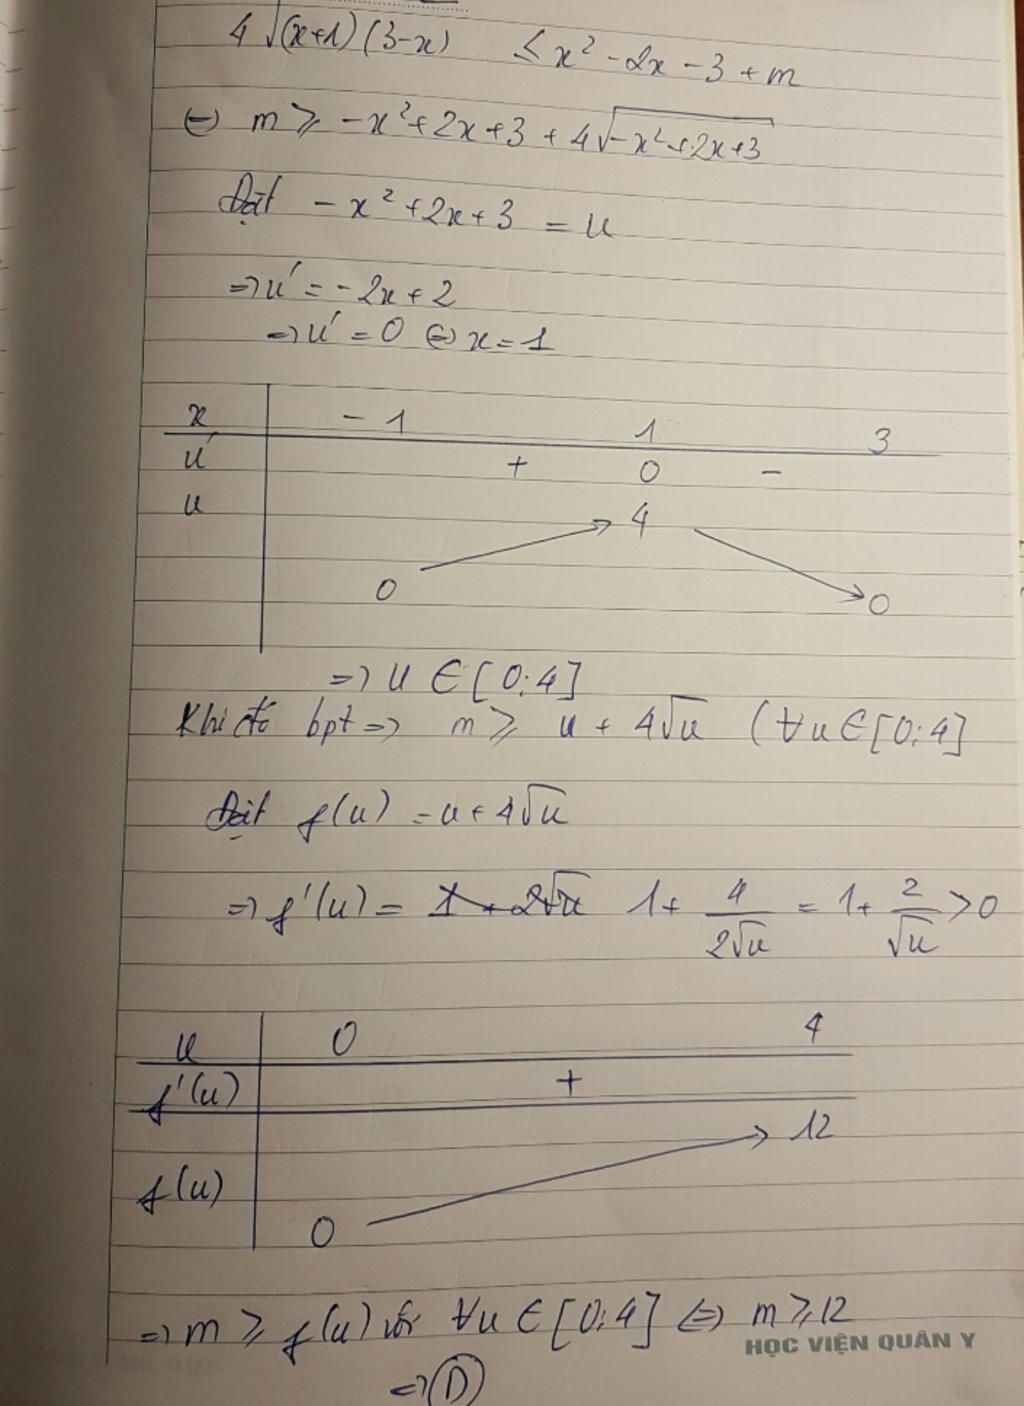 4√(x+1)(3-x) ≤ x² - 2x - 3 + m
⇔ m ≥ -x² + 2x + 3 + 4√-x² + 2x + 3
Đặt -x² + 2x + 3 = u
⇒ u' = -2x + 2
⇒ u' = 0 ⇔ x = 1
x -1 1 3
u' + 0 -
u 4
0 0
⇒ u ∈ [0; 4]
Khi đó bpt ⇒ m ≥ u + 4√u (∀u ∈ [0; 4]
Đặt f(u) = u + 4√u
⇒ f'(u) = 1 + 4/2√u = 1 + 2/√u > 0
u 0 4
f'(u) +
12
f(u)
0
⇒ m ≥ f(u) với ∀u ∈ [0; 4] ⇔ m ≥ 12
HỌC VIỆN QUÂN Y
⇒ D